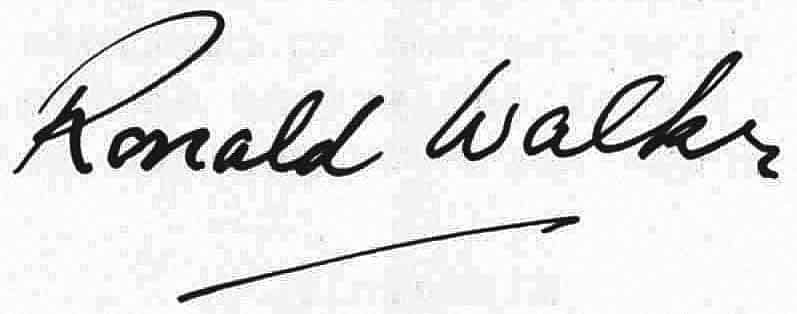 Ronald Walker